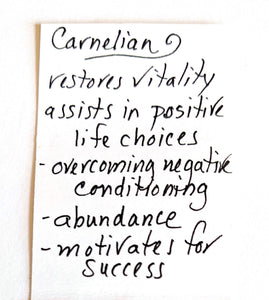 Carnelian
restores vitality
assists in positive
life choices
- overcoming negative
conditioning
- abundance
- motivates for
success